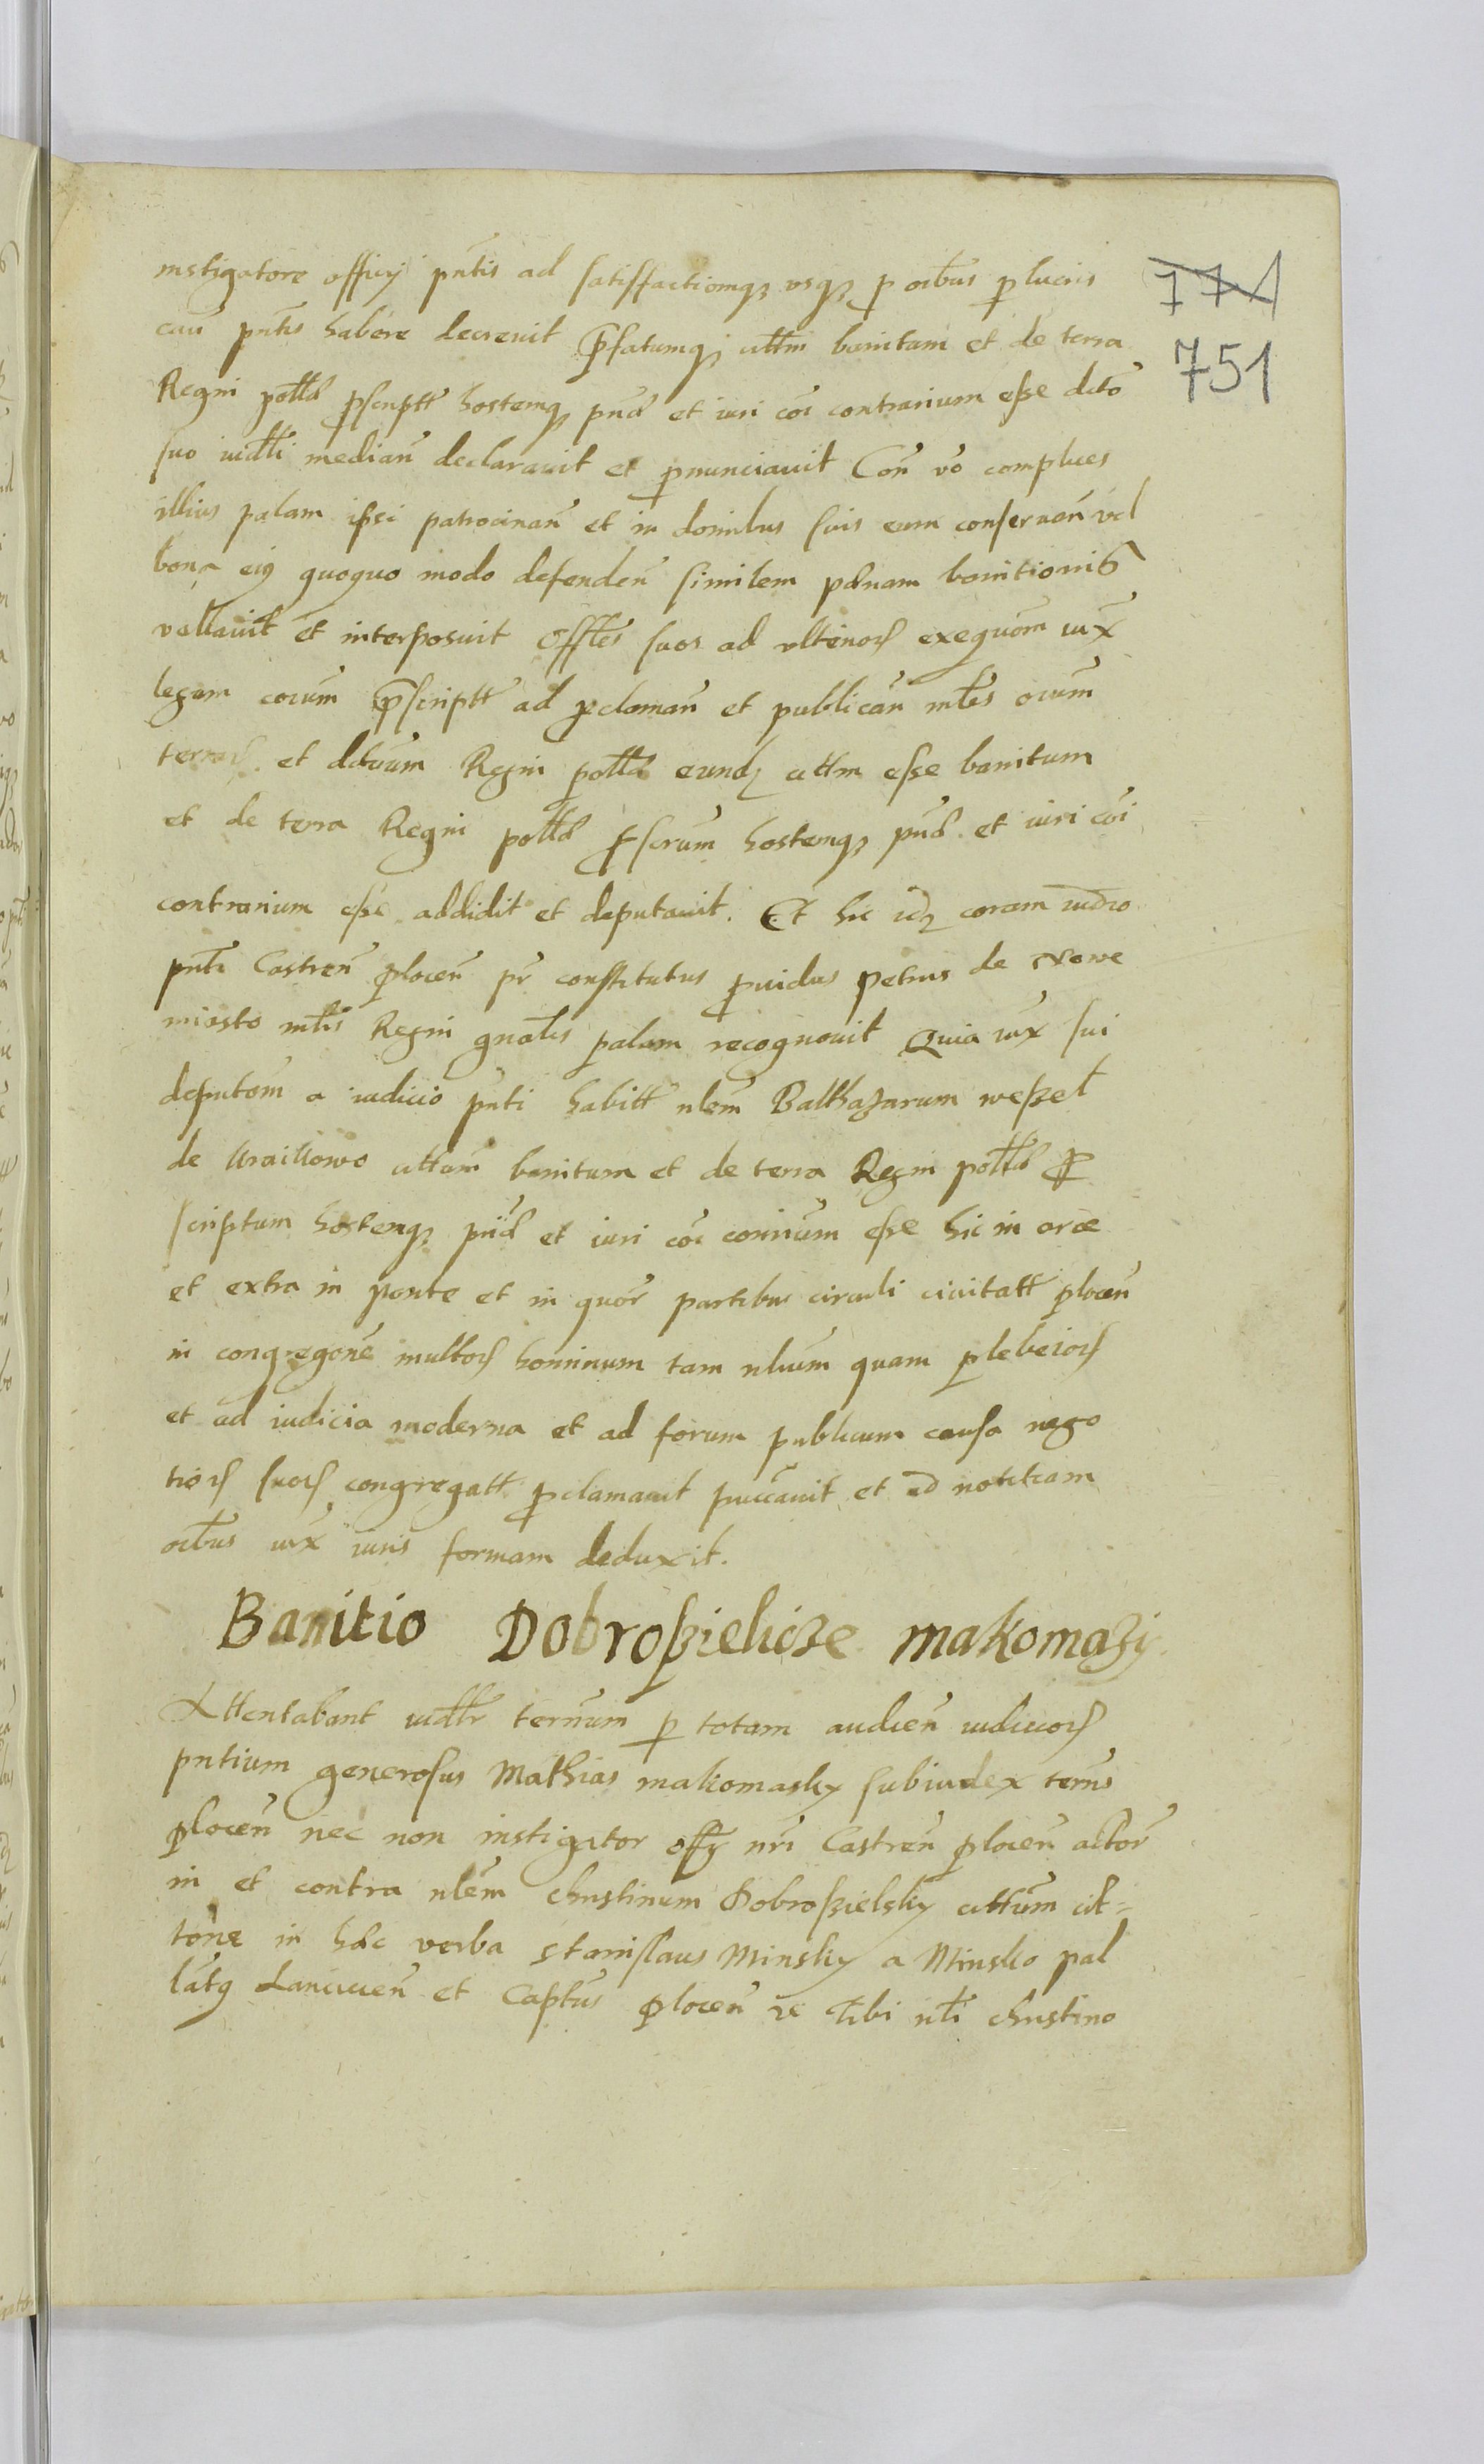 instigatore officij pñtis ad satisfactiomq3 vsq3 p oibus p lucris
cau pñtis habere decreuit p̃fatumq3 citt̃m banitum et de terra
Regni poll̃ae pscriptt hostemq3 pñae et iuri cõi contrarium esse dcto
suo iudlĩ median̄ declarauit et p̱nunciauit Con̄ vo complices
illius palam ipsi patrocinan̄ et in domibus suis eum conseruan̄ vel
bona eiꝰ quoquo modo defenden̄ similem pænam banitionis
vallauit et interposuit Offles̄ suos ad vlterioꝝ exequōm iux̄
legum corum̄ p̄scriptt ad pclaman̄ et publican̄ mlẽs oium̄
terraꝝ et dctuum̄ Regni poll̃ae eundȝ citt̃m esse banitum
et de terra Regni poll̃ae pscrum̄ hostemq3 pñae et iuri cõi
contrarium esse addidit et deputauit. Et hic idȝ coram iudicio
pñti Castren̄ plocen̄ pr̄ constitutus prouidus Petrus de Nowe
miasto mlr̃is Regni gñalis palam recognouit Quia iux̄ sui
deputōm a iudicio pñti habitt nlem̄ Balthazarum weßel
de citt̃am̄ banitum et de terra Regni poll̃ae p
scriptum hostemq3 pñae et iuri cõi cōrium̄ esse hic in arce
et extra in ponte et in quõr partibus circuli ciuitatt plocen̄
in congregōne multoꝝ hominum tam nlium̄ quam plebeioꝝ
et ad iudicia moderna et ad forum publicum causa nego
tioꝝ suoꝝ congregatt pclamauit puccauit et ad notitiam
oibus iux̄ iuris formam deduxit.
Banitio Dobroßielicze makomazij
Attentabant iudlr̄ ternum̄ p totam audien̄ iudicioꝝ
pntium generosus Mathias makomasky subiudex terrs̄
plocen̄ nec non instigator offij nrĩ Castren̄ plocen̄ actor̄
in et contra nlem̄ christinum Dobroßielsky cittum̄ cit=
tone in hæc verba Stanislaus Minsky a Minsko pal
latꝰ Lancicien̄ et Captus̄ plocen̄ zc Tibi nlĩ christino
774
751